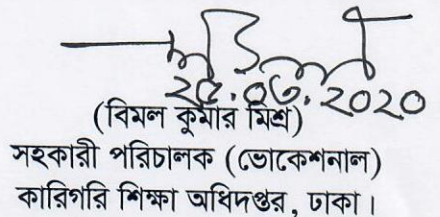 ২৫.০৩.2020
(বিমল কুমার মিশ্র)
সহকারী পরিচালক (ভোকেশনাল)
কারিগরি শিক্ষা অধিদপ্তর, ঢাকা।